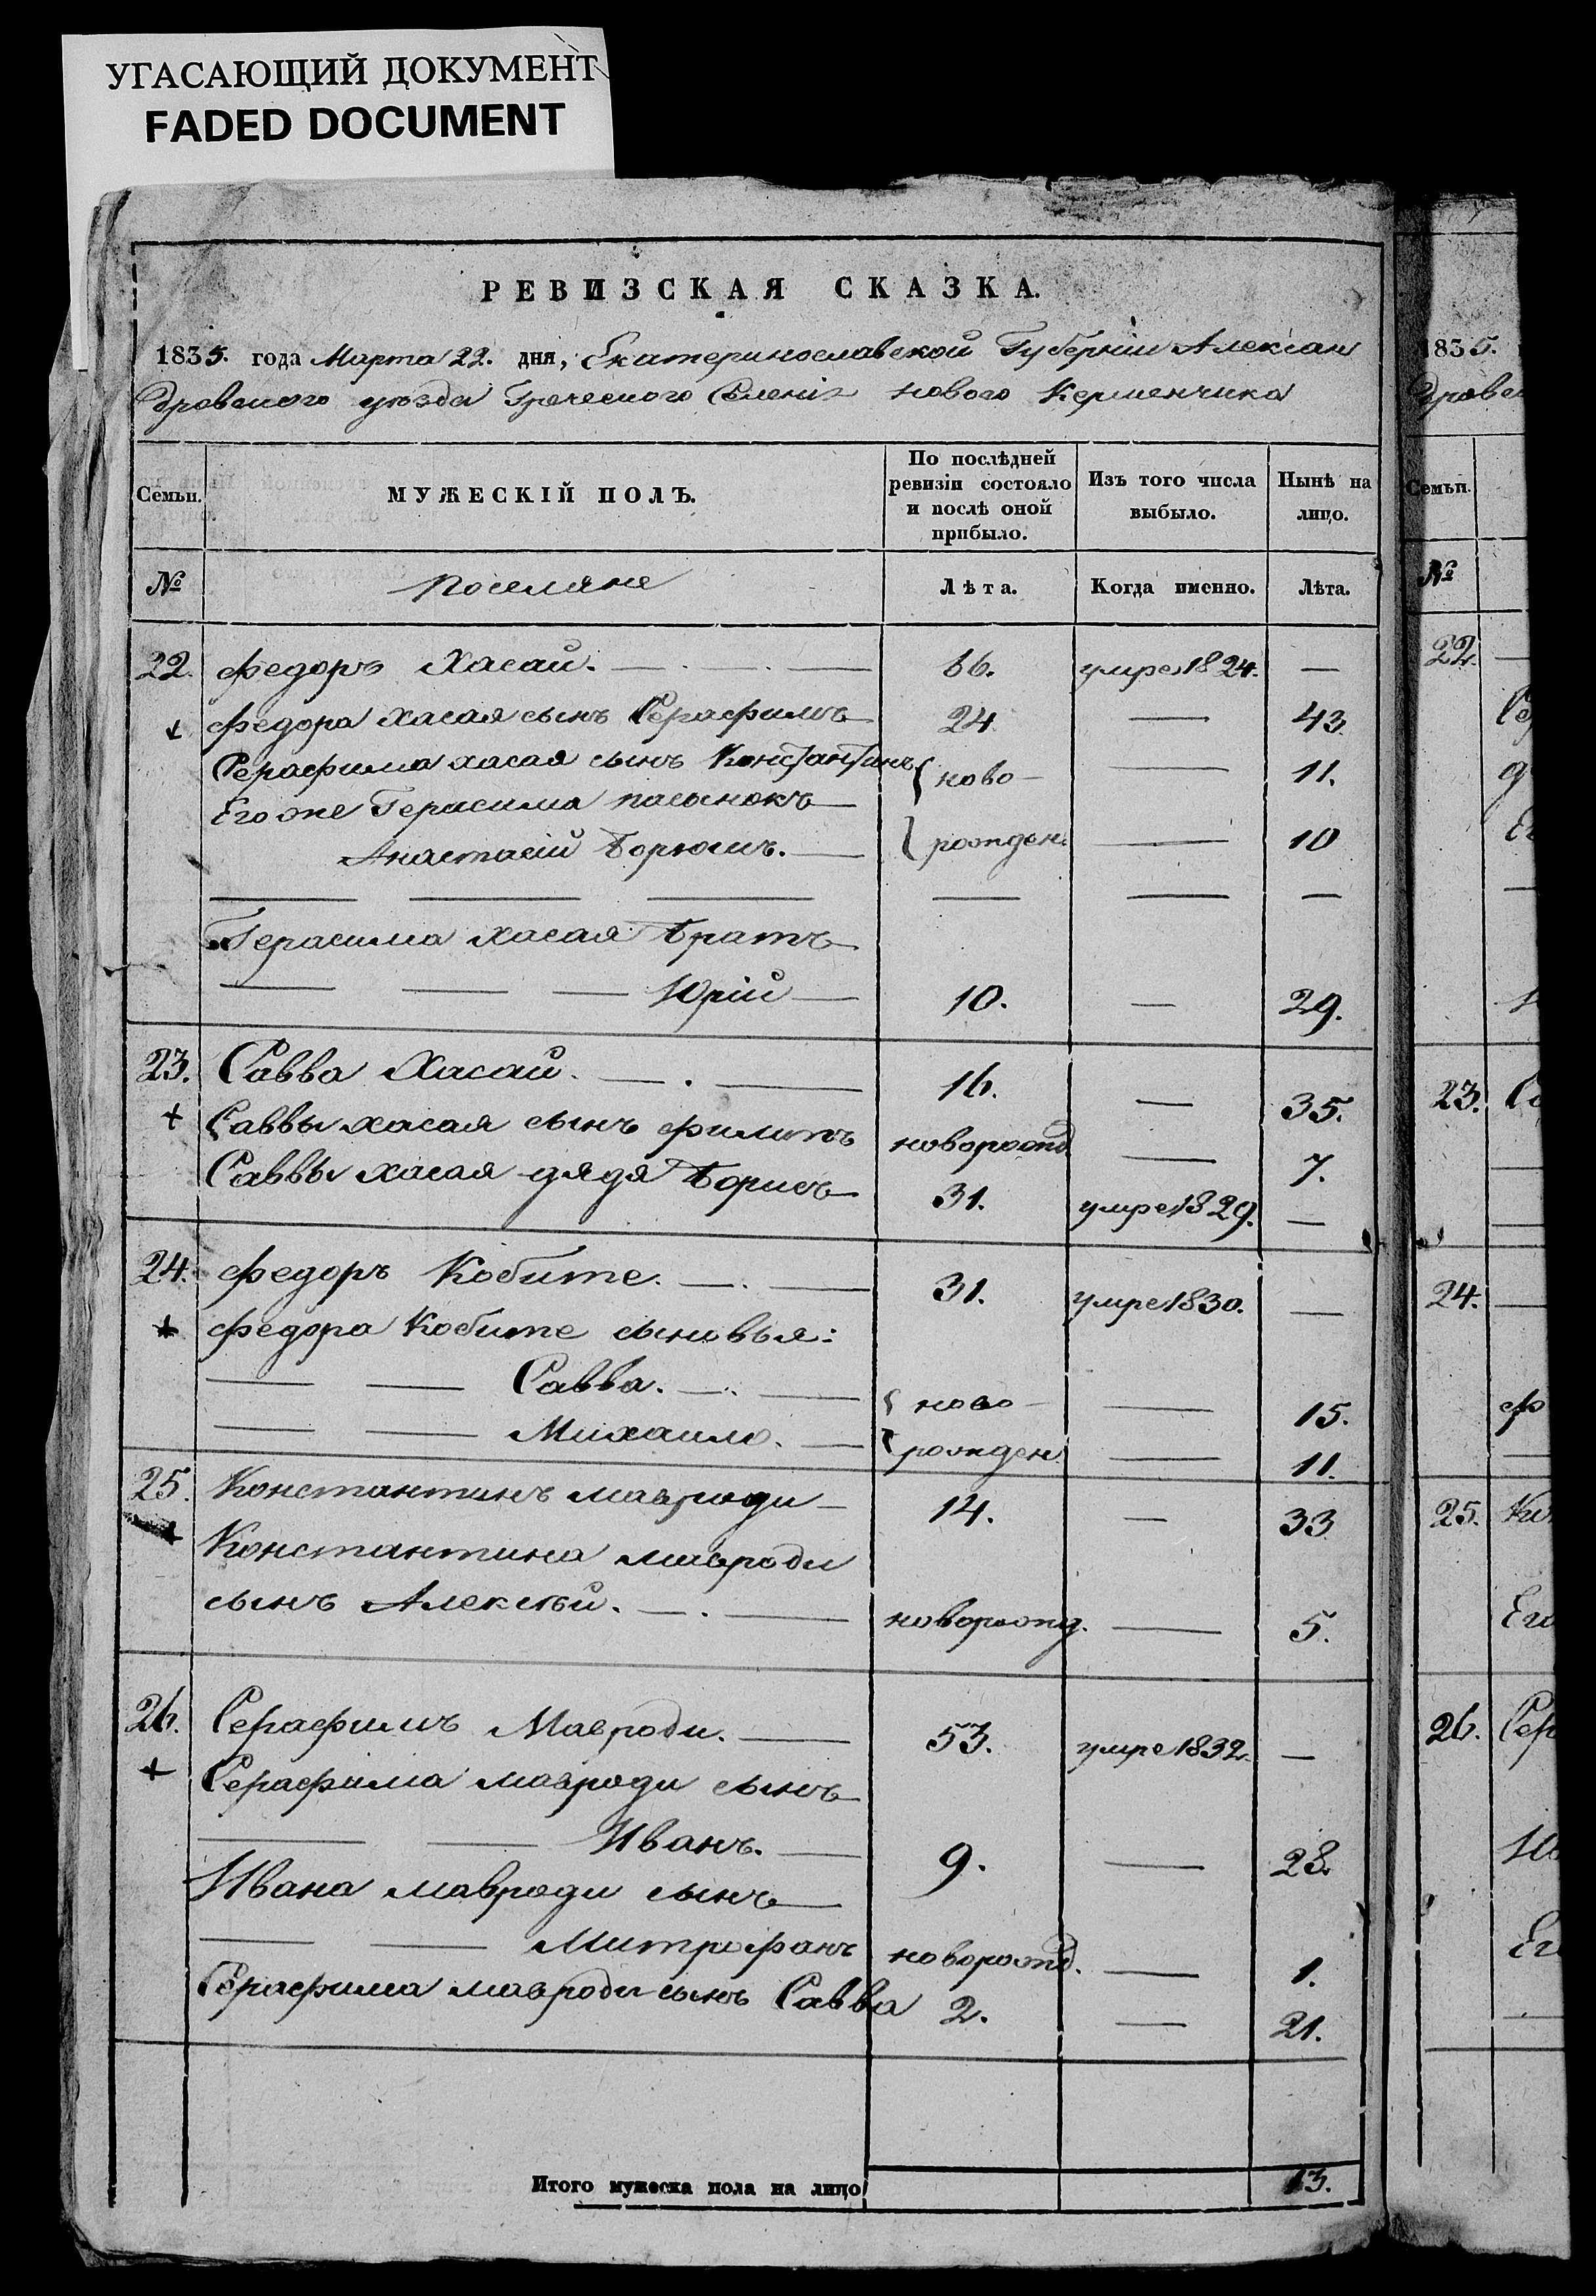 УГАСАЮЩИЙ ДОКУМЕНТ
FADED DOCUMENT
РЕВИЗСКАЯ СКАЗКА.
1835. года Марта 22. дня, Екатеринославской Губерніи Алексан
дровского уезда Греческого Селенія Нового Керменчика
Семьи. МУЖЕСКІЙ ПОЛЪ. По послѣдней ревизіи состояло и послѣ оной прибыло. Изъ того числа выбыло. Нынѣ на лицо.
№ Поселяне Лѣта. Когда именно. Лѣта.
22. Федоръ Хасай. — 66. умре 1824. —
Федора Хасая сынъ Серафимъ 24 — 43
Серафима Хасая сынъ Константинъ ново — 11.
Его же Герасима пасынокъ
Анастасій Борюшъ. — рожден. — 10
Герасима Хасая братъ
Юрій — 10. — 29.
23. Савва Хасай. — 16. — 35.
Саввы Хасая сынъ Филипъ новорожд — 7.
Саввы Хасая дядя Борисъ 31. умре 1829. —
24. Федоръ Кобите. — 31. умре 1830. —
Федора Кобите сыновья:
Савва. — ново — 15.
Михаило. — рожден. — 11.
25. Константинъ Мавроди — 14. — 33
Константина Мавроди
сынъ Алексѣй. — новорожд. — 5.
26. Серафимъ Мавроди. — 53. умре 1832. —
Серафима Мавроди сынъ
Иванъ. — 9. — 28.
Ивана Мавроди сынъ
Митрофанъ новорожд. — 1.
Серафима Мавроди сынъ Савва 2. — 21.
Итого мужеска пола на лицо 13.
1835.
дровс
Семьи.
№
22.
23.
24.
25.
26.